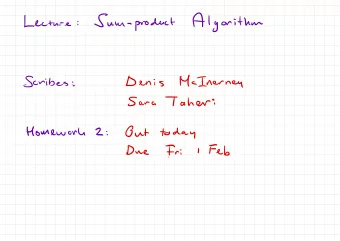 Lecture: Sum-product Algorithm
Scribes: Denis McInerney
Sara Taheri
Homework 2: Out today
Due Fri 1 Feb